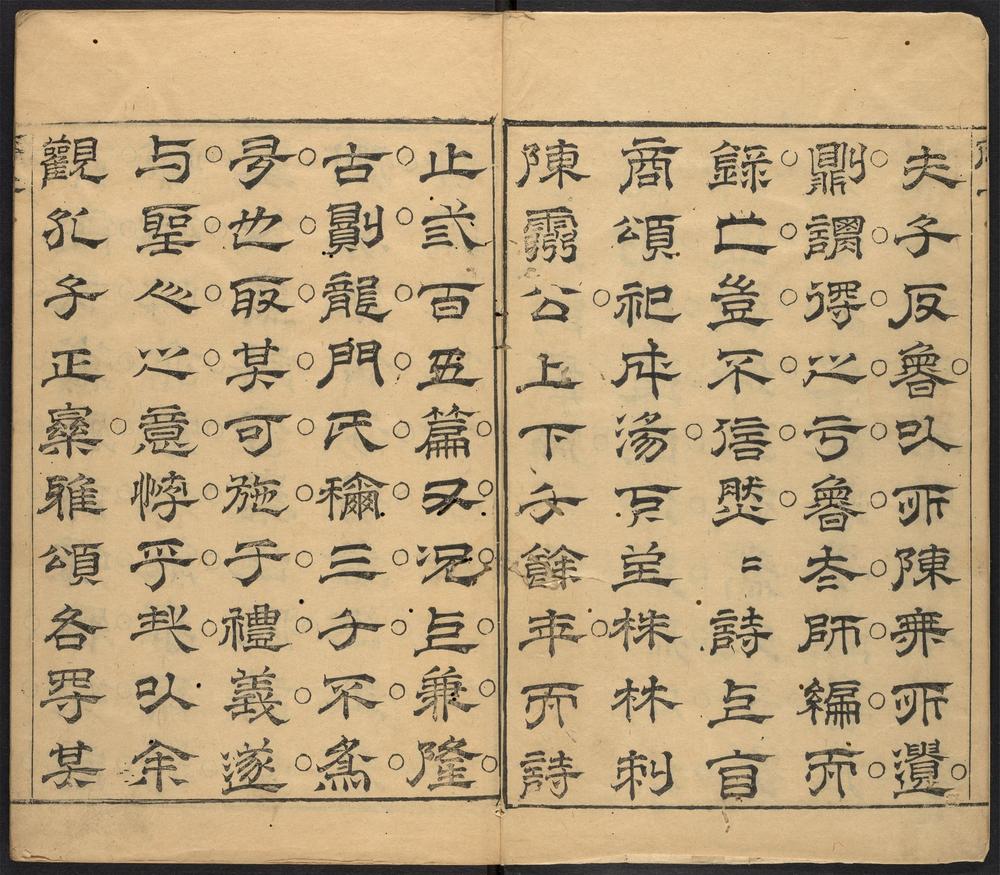 夫子反魯以所陳無所遺
則謂得之于魯太師編而
錄之豈不信然〻詩上自
商頌祀成湯下至株林刺
陳靈公上下千餘年而詩
止弎百五篇又況上兼隆
古則龍門氏稱三千不為
多也取其可施于禮義遂
与聖人之意悖乎哉以余
觀孔子正樂雅頌各得其